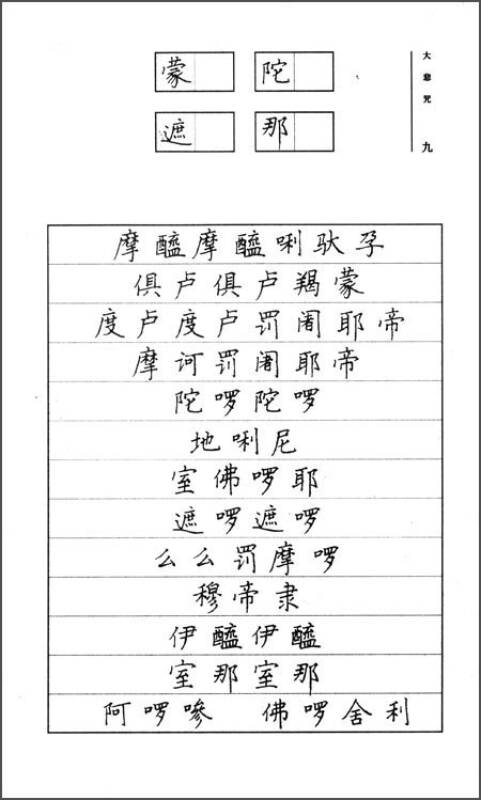 大悲咒 九
蒙 陀
遮 那
摩醯摩醯唎驮孕
俱卢俱卢羯蒙
度卢度卢罚阇耶帝
摩诃罚阇耶帝
陀啰陀啰
地唎尼
室佛啰耶
遮啰遮啰
么么罚摩啰
穆帝隶
伊醯伊醯
室那室那
阿啰嘇 佛啰舍利